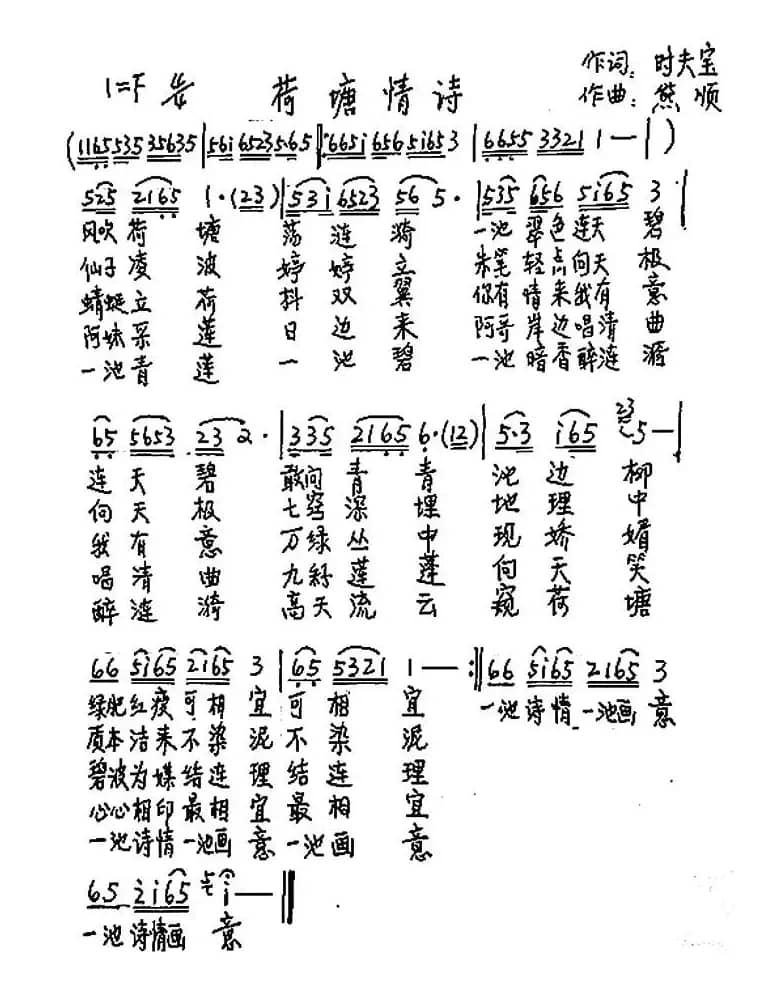 1=F 荷塘情诗 作词：时夫宝
作曲：熊顺
(1165535 35635|561 6523 565|:6651 656 51653|6655 3321 1—|)
525 2165 1·(23)|531 6523 56 5·|535 656 5165 3|
风吹荷塘 荡涟漪 一池翠色连天碧
仙子凌波 婷婷立 朱笔轻点向天极
蜻蜓立荷 抖双翼 你有情来我有意
阿妹采莲 日边来 阿哥岸边唱清曲
一池青莲 一池碧 一池暗香醉涟漪
65 5653 23 2·|335 2165 6·(12)|5·3 i65 235—|
连天碧 敢问青青池边柳
向天极 七窍深埋地理中
我有意 万绿丛中现娇婿
唱清曲 九籽莲蓬向天笑
醉涟漪 高天流云窥荷塘
66 5i65 2i65 3|65 5321 1——:||66 5i65 2165 3
绿肥红瘦可相宜可相宜 一池诗情一池画意
质本洁来不染泥不染泥
碧波为媒结连理结连理
心心相印最相宜最相宜
一池诗情一池画意一池画意
65 2i65 i—||
一池诗情画意